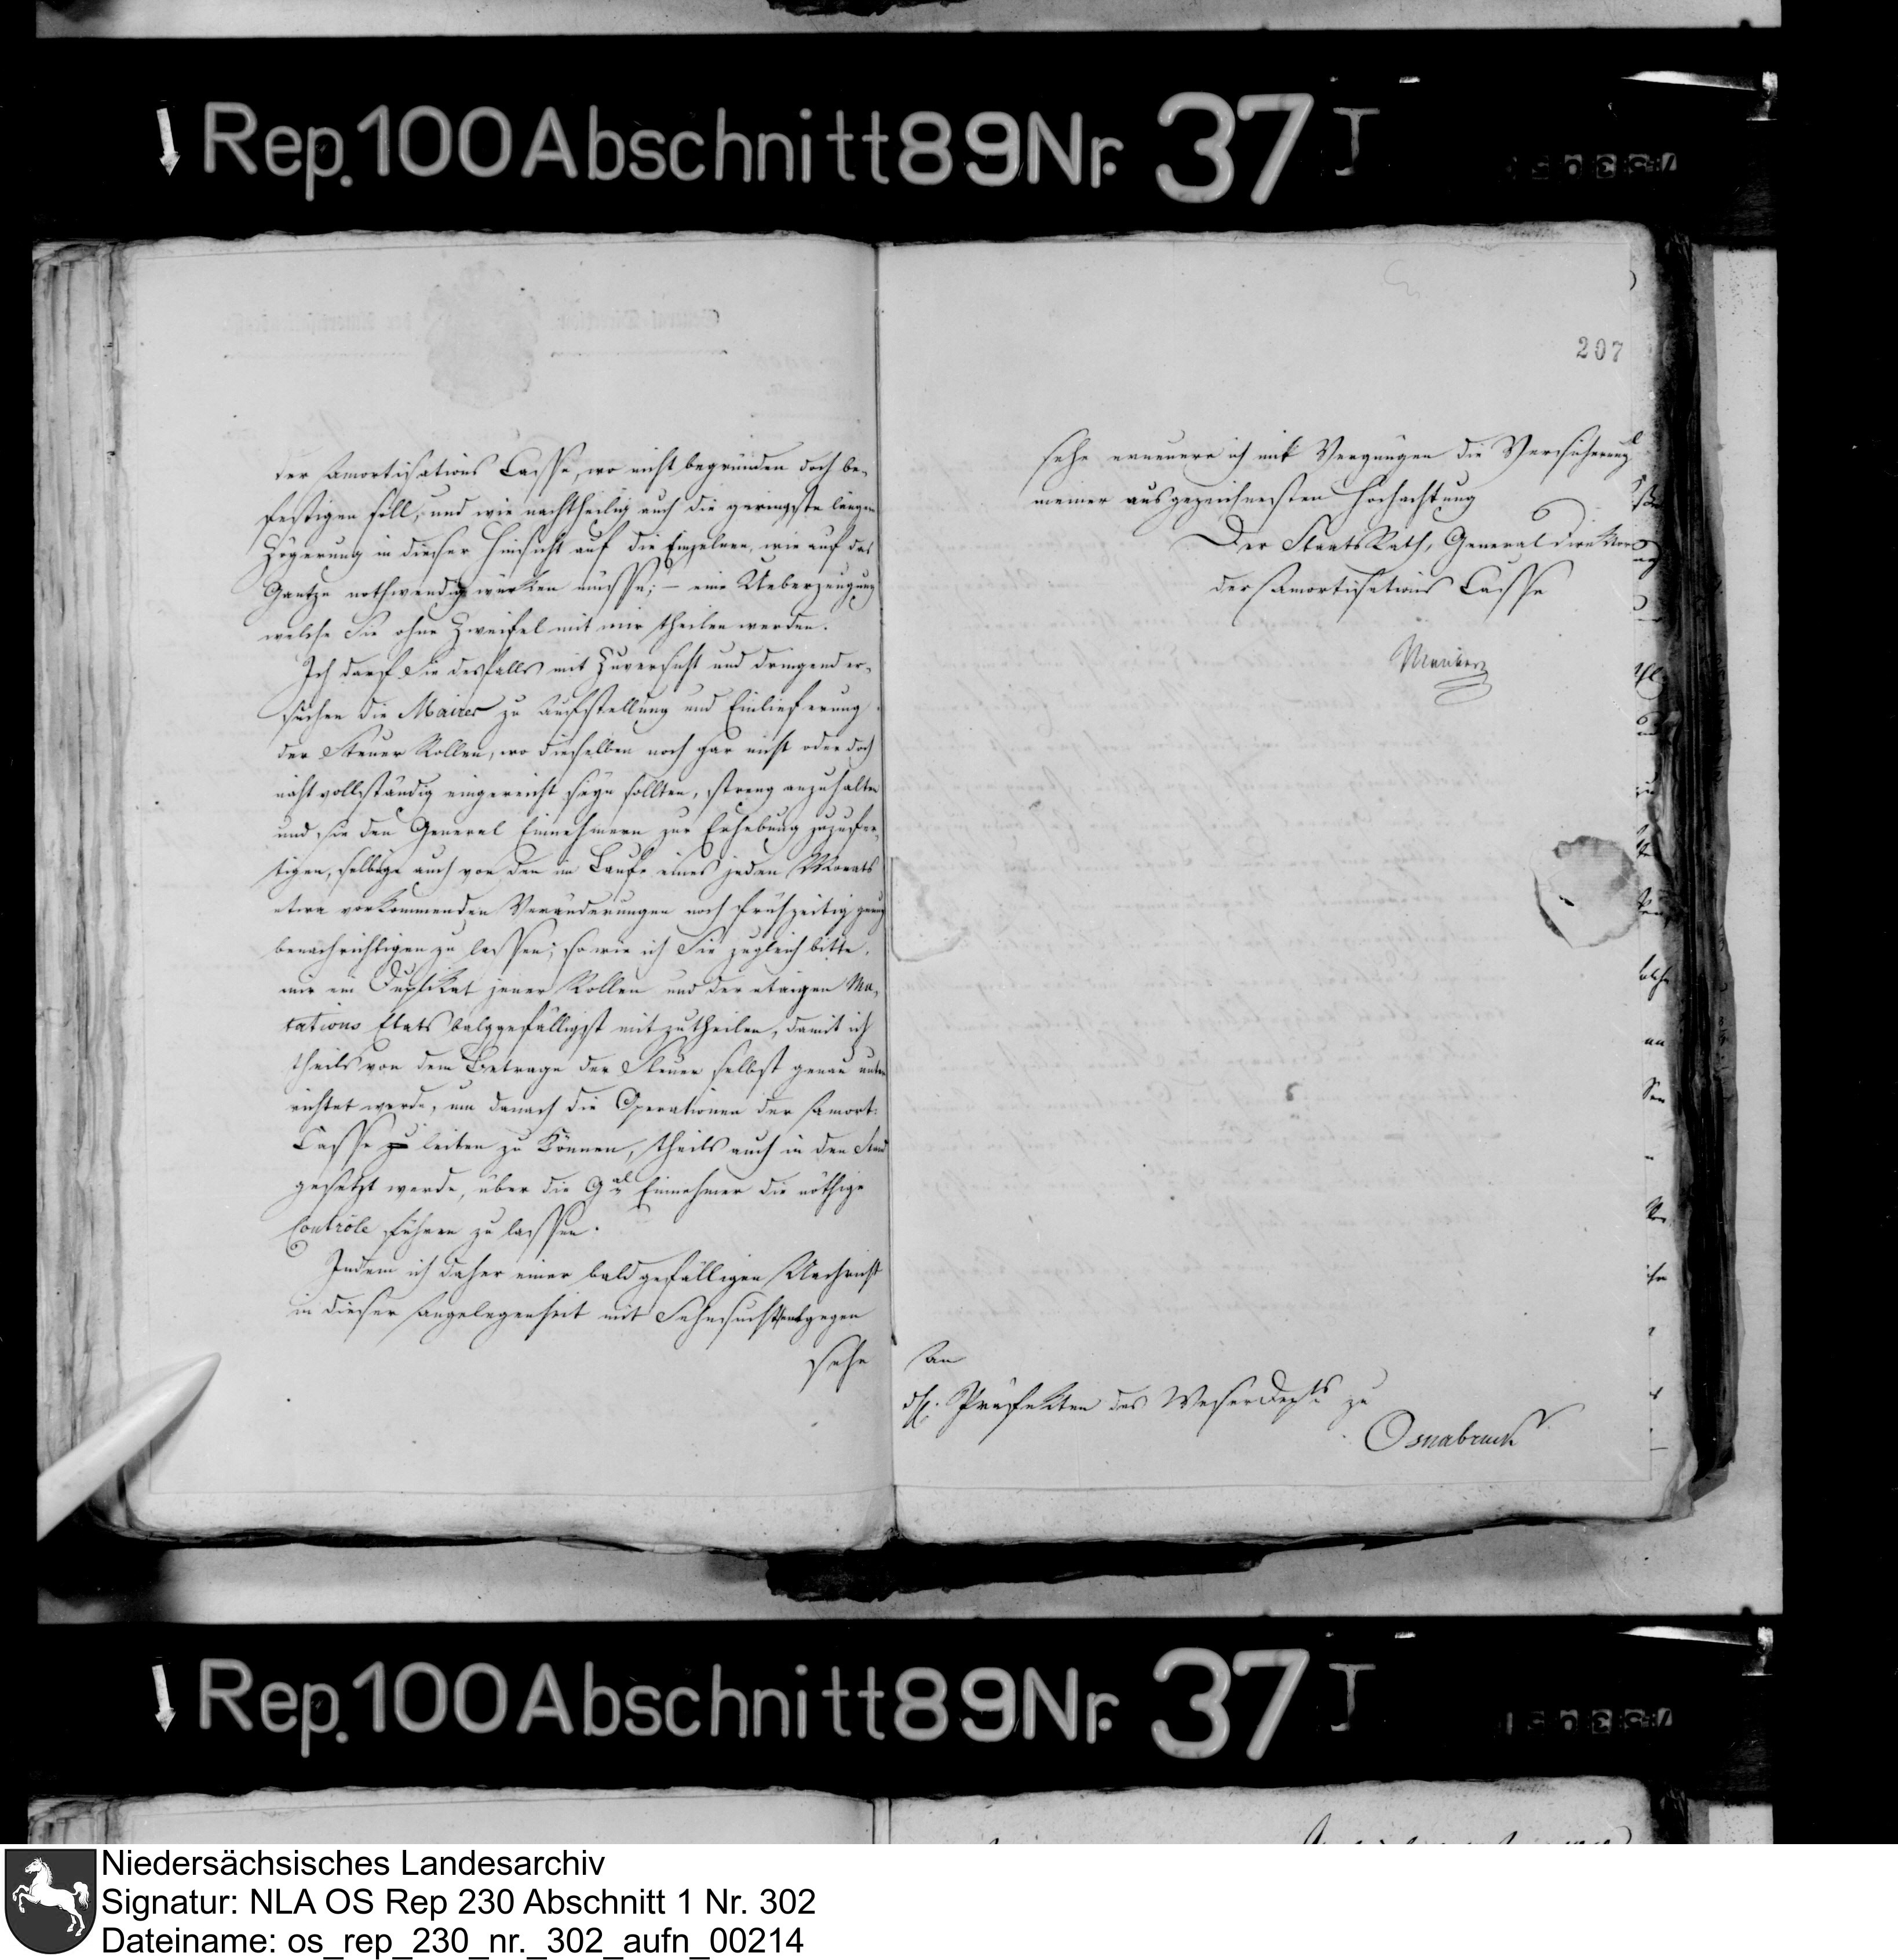 Rep. 100 Abschnitt 89 Nr. 37 I
207
der Amortisations Casse, wo nicht begründen doch be-
festigen soll, und wie nachtheilig auch die geringste längere
Zögerung in dieser Hinsicht auf die Einzelnen, wie auf das
Gantze nothwendig würken müsse; – eine Ueberzeugung
welche Sie ohne Zweifel mit mir theilen werden.
Ich darf Sie desfalls mit Zuversicht und dringend er-
suchen die Maires zu Aufstellung und Einlieferung
der Steuer Rollen, wo dieselben noch gar nicht oder doch
nicht vollständig eingereicht seyn sollten, streng anzuhalten
und sie den General Einnehmern zur Erhebung zuzufer-
tigen, selbige auch von den im Laufe eines jeden Monats
etwa vorkommenden Veränderungen noch frühzeitig genug
benachrichtigen zu lassen; so wie ich Sie zugleich bitte,
mir ein Duplikat jener Rollen und der etwaigen Mu-
tations Etats baldgefälligst mitzutheilen, damit ich
theils von dem Betrage der Steuer selbst genau unter
richtet werde, um danach die Operationen der Amort.
Casse zu leiten zu können, theils auch in den Stand
gesetzt werde, über die Gal Einnehmer die nöthige
Contrôle führen zu lassen.
Indem ich daher einer bald gefälligen Nachricht
in dieser Angelegenheit mit Sehnsucht entgegen
sehe
sehe erneuere ich mit Vergnügen die Versicherung
meiner ausgezeichnetsten Hochachtung
Der StaatsRath, General Direktor
der Amortisations Casse
An
d. H. Präfekten des Weser Depts zu
Osnabruck
Rep. 100 Abschnitt 89 Nr. 37 I
Niedersächsisches Landesarchiv
Signatur: NLA OS Rep 230 Abschnitt 1 Nr. 302
Dateiname: os_rep_230_nr._302_aufn_00214